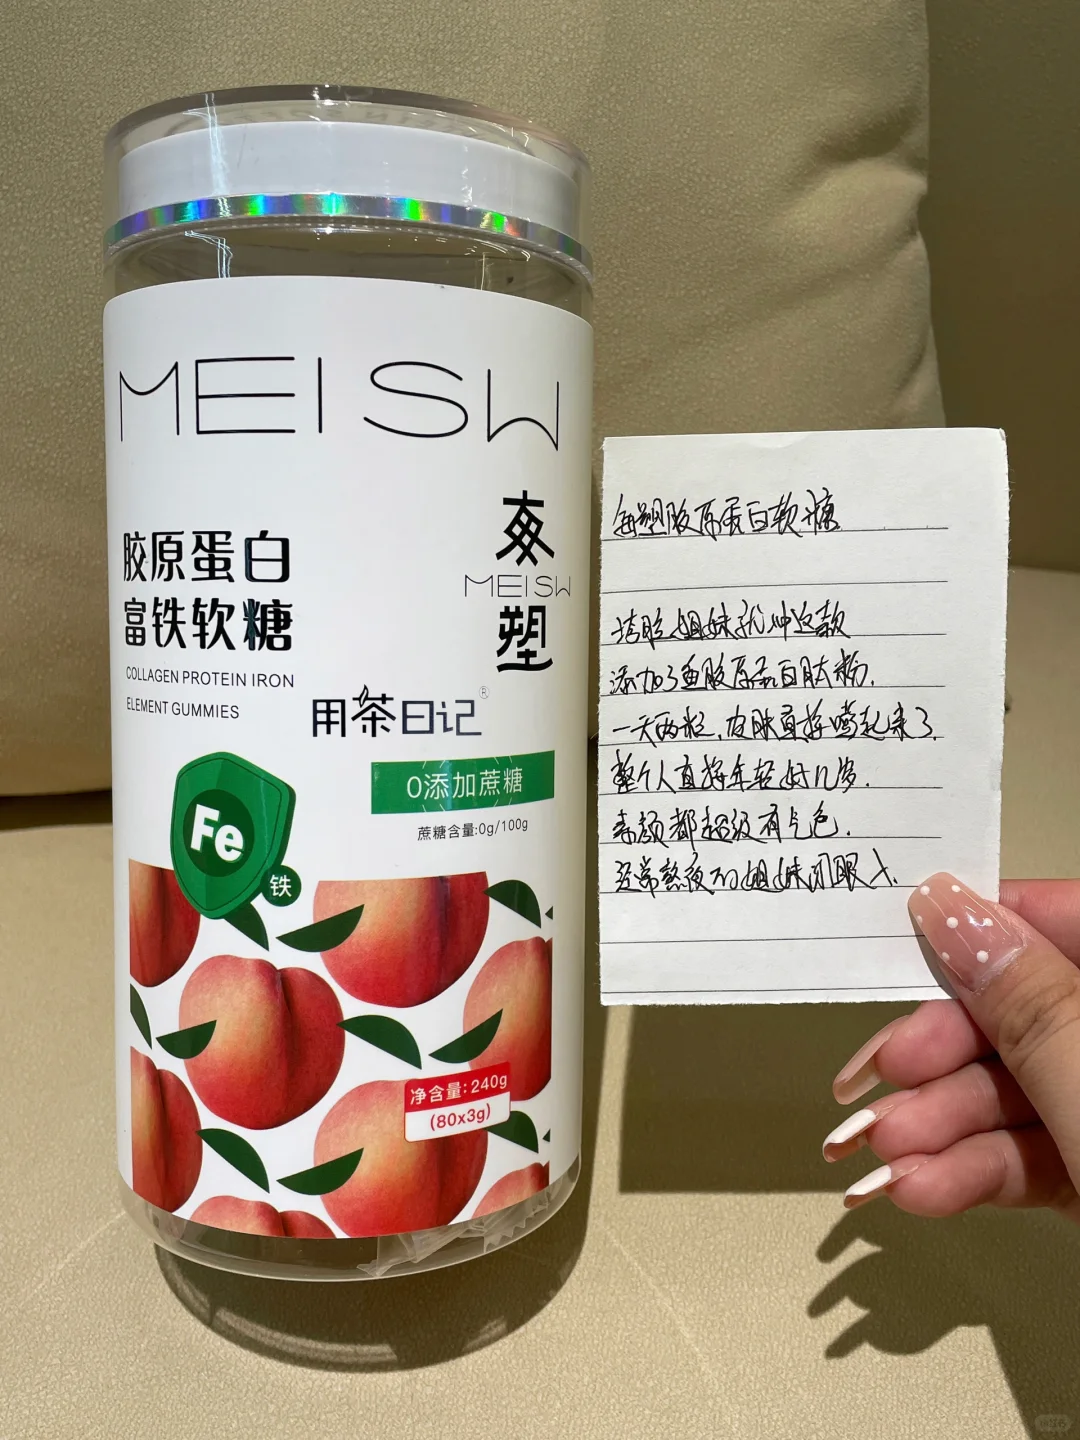 MEISW
胶原蛋白
富铁软糖
COLLAGEN PROTEIN IRON
ELEMENT GUMMIES
MEISW
塑
用茶日记®
0添加蔗糖
蔗糖含量:0g/100g
Fe
铁
净含量:240g
(80x3g)
每塑胶原蛋白软糖
垮脸姐妹就冲这款
添加了鱼胶原蛋白肽粉.
一天两粒,皮肤直接嘭起来了.
整个人直接年轻好几岁.
素颜都超级有气色.
经常熬夜的姐妹闭眼入.